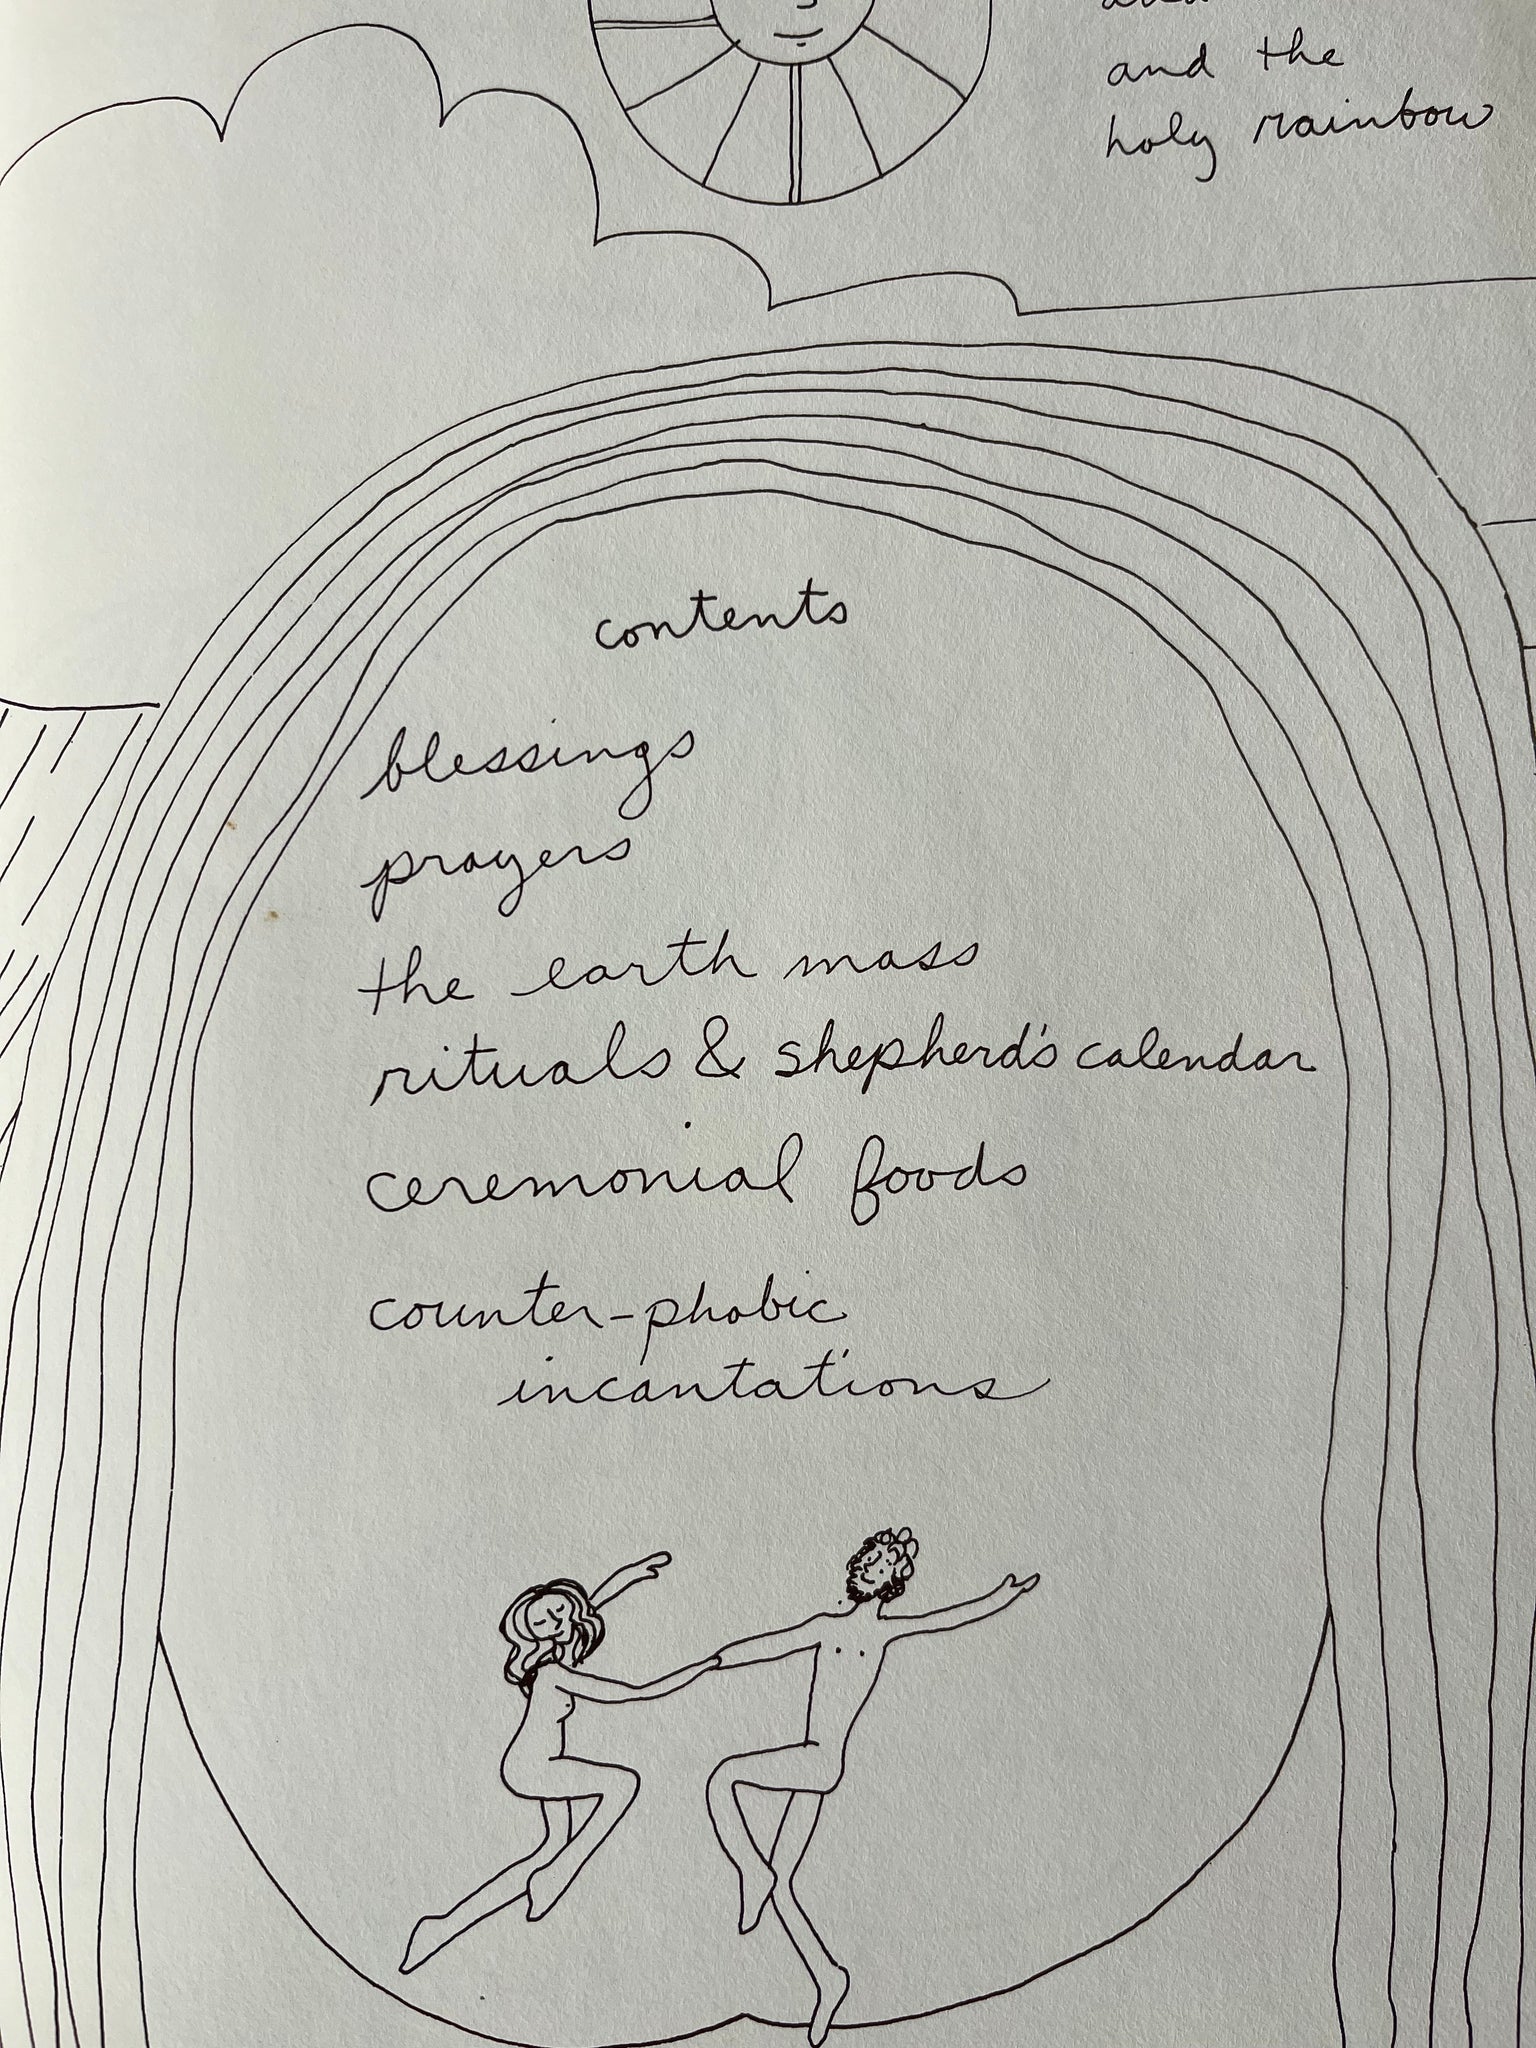 and the
holy rainbow
contents
blessings
prayers
the earth mass
rituals & shepherd's calendar
ceremonial foods
counter-phobic
incantations